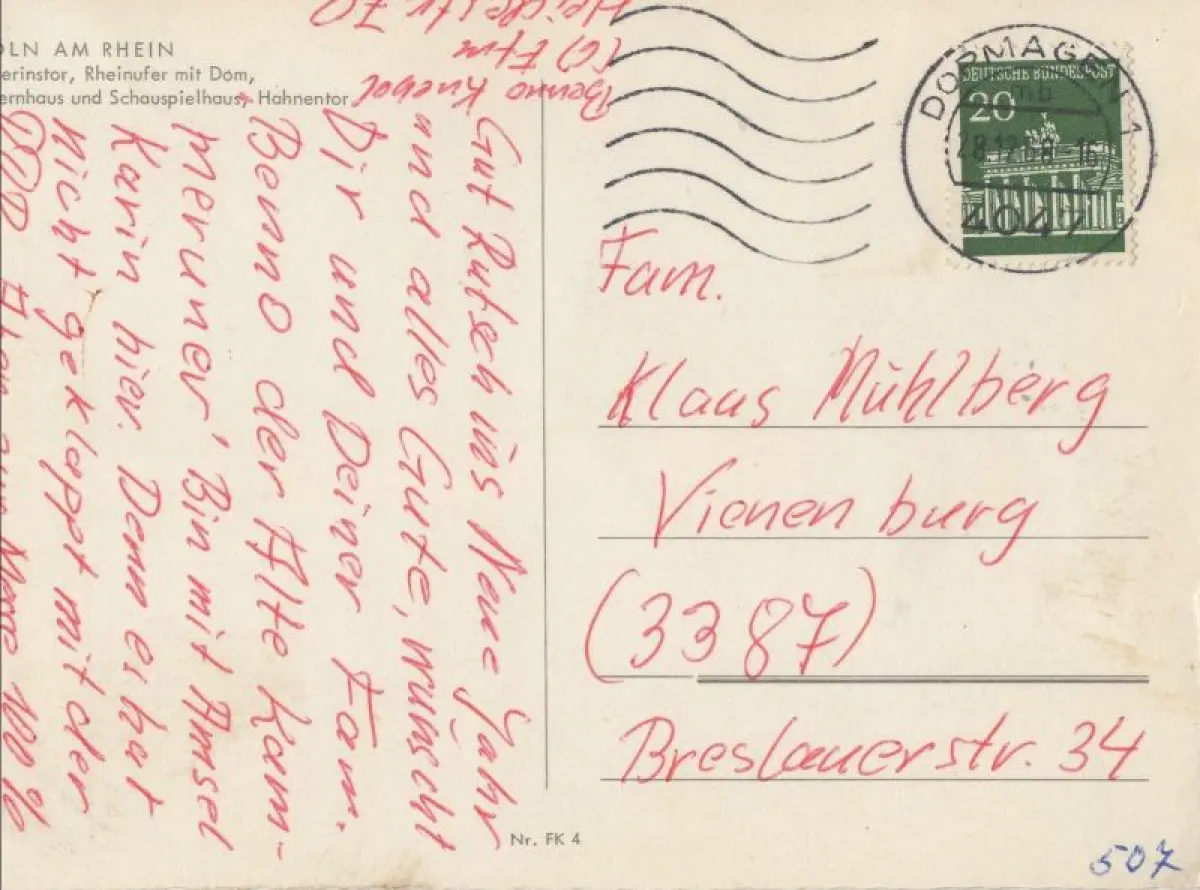 ÖLN AM RHEIN
erinstor, Rheinufer mit Dom,
ernhaus und Schauspielhaus, Hahnentor
Benno Knebel
(6) Ffm
70
Gut Rutsch ins Neue Jahr
und alles Gute, wünscht
Dir und Deiner Fam.
Benno der Alte Kam-
meruner' Bin mit Amsel
Karin hier. Denn es hat
nicht geklappt mit der
DDR 100%
DORMAGEN 1
mb
28.12.68-16
4047
DEUTSCHE BUNDESPOST
20
Fam.
Klaus Mühlberg
Vienenburg
(3387)
Breslauerstr. 34
Nr. FK 4
507